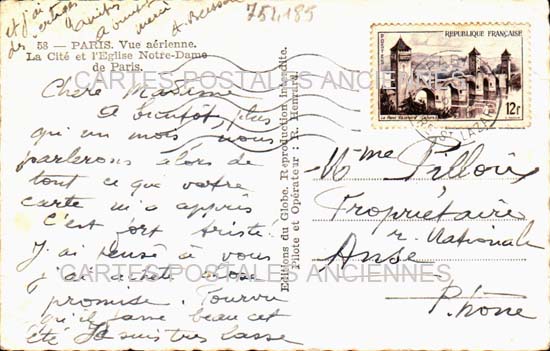 et j'ai
des
merci
A. Besson
754189
58 — PARIS. Vue aérienne.
La Cité et l'Eglise Notre-Dame
de Paris.
CARTES POSTALES ANCIENNES
Chère Madame
A bientôt, plus
qu'un mois, nous
parlerons alors de
tout ce que votre
carte m'a appris
C'est fort triste!
J'ai pensé à vous
j'ai acheté chose
promise. Pourvu
qu'il fasse beau cet
été Je suis très lasse
Editions du Globe. Reproduction interdite.
Pilote et Opérateur : R. Henrard.
POSTES
REPUBLIQUE FRANÇAISE
Le Pont Valentré Cahors
12f
ST LAZARE
Mme Pilloix
Propriétaire
r. Nationale
Anse
Rhône
CARTES POSTALES ANCIENNES